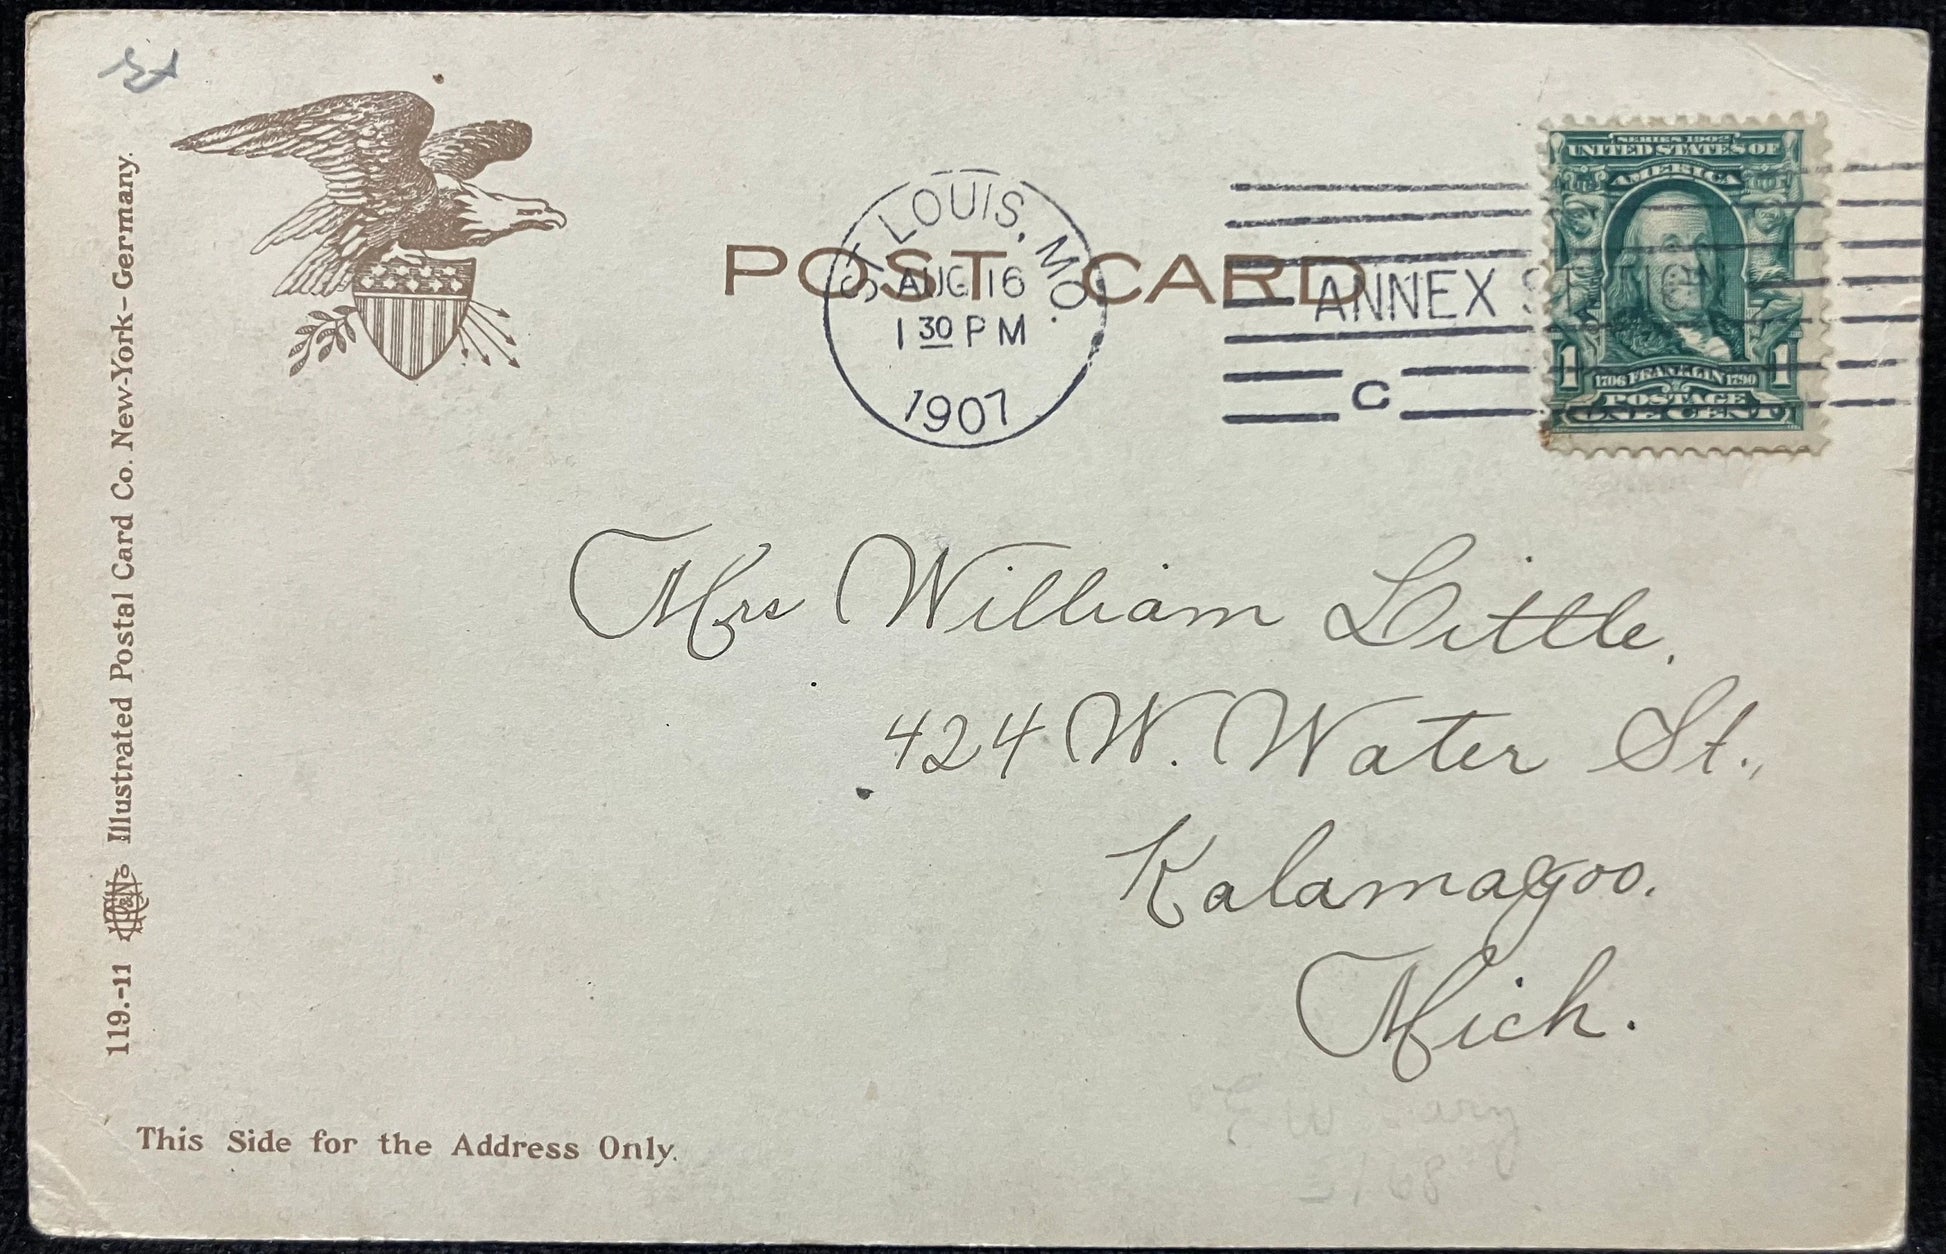 POST CARD
ST. LOUIS, MO.
AUG 16
1 30 PM
1907
ANNEX
C
SERIES 1902
UNITED STATES OF
AMERICA
1 1706 FRANKLIN 1790 1
POSTAGE
ONE CENT
119.-11 Illustrated Postal Card Co. New-York-Germany.
Mrs William Little,
424 W. Water St.,
Kalamazoo.
Mich.
This Side for the Address Only.